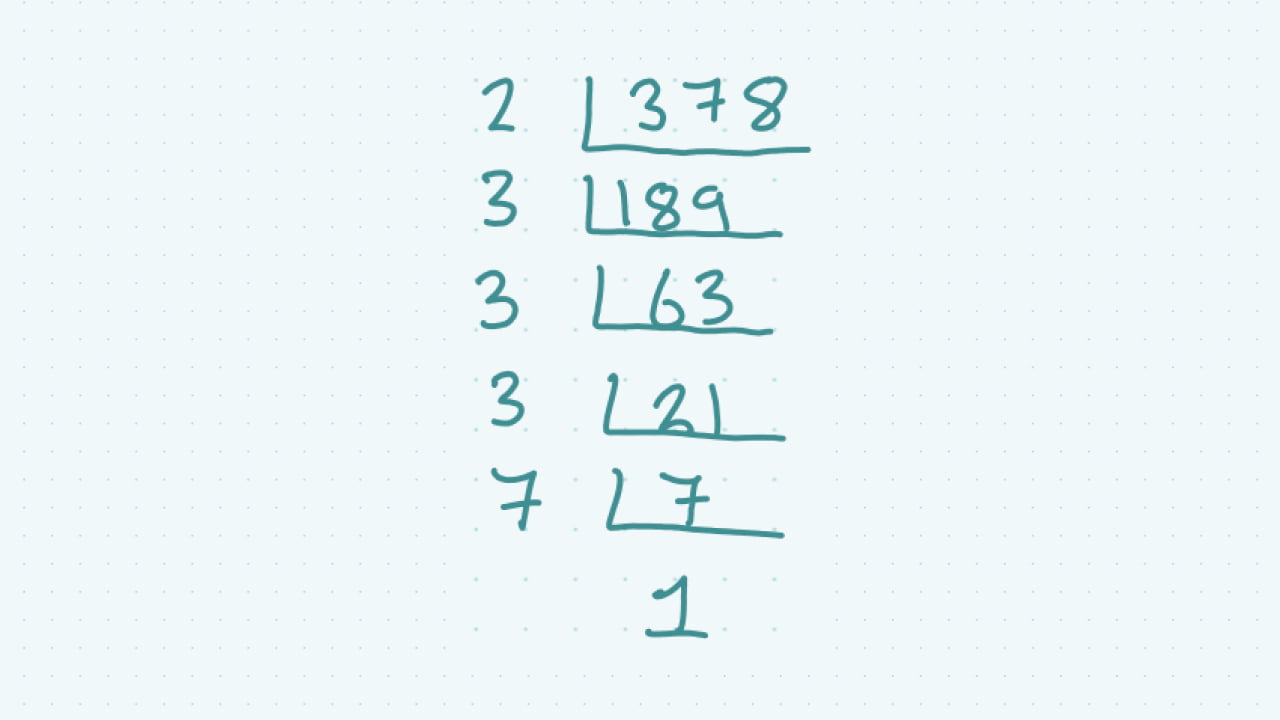 2 378
3 189
3 63
3 21
7 7
1